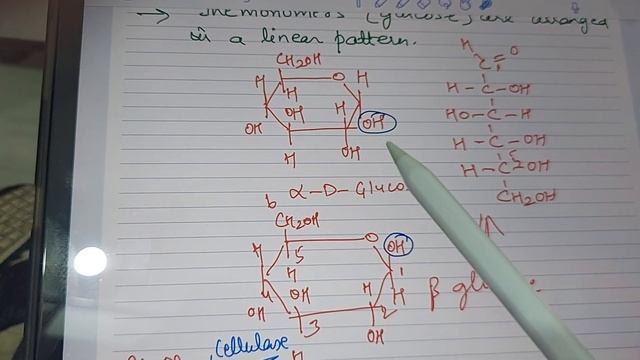 → monomers (glucose) are arranged
in a linear pattern.
CH₂OH
H O H
H
OH H
OH OH
H OH
H O
C
H-C-OH
HO-C-H
H-C-OH
H-C⁵-OH
CH₂OH
α-D-Gluco
6 CH₂OH
H 5 O OH
H 1
4 OH H H
OH 3 2
H OH
β gl
cellulase